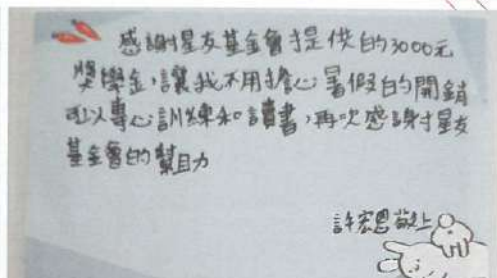 感謝星友基金會提供的3000元
獎學金,讓我不用擔心暑假的開銷
可以專心訓練和讀書,再次感謝星友
基金會的幫助
許宏恩敬上